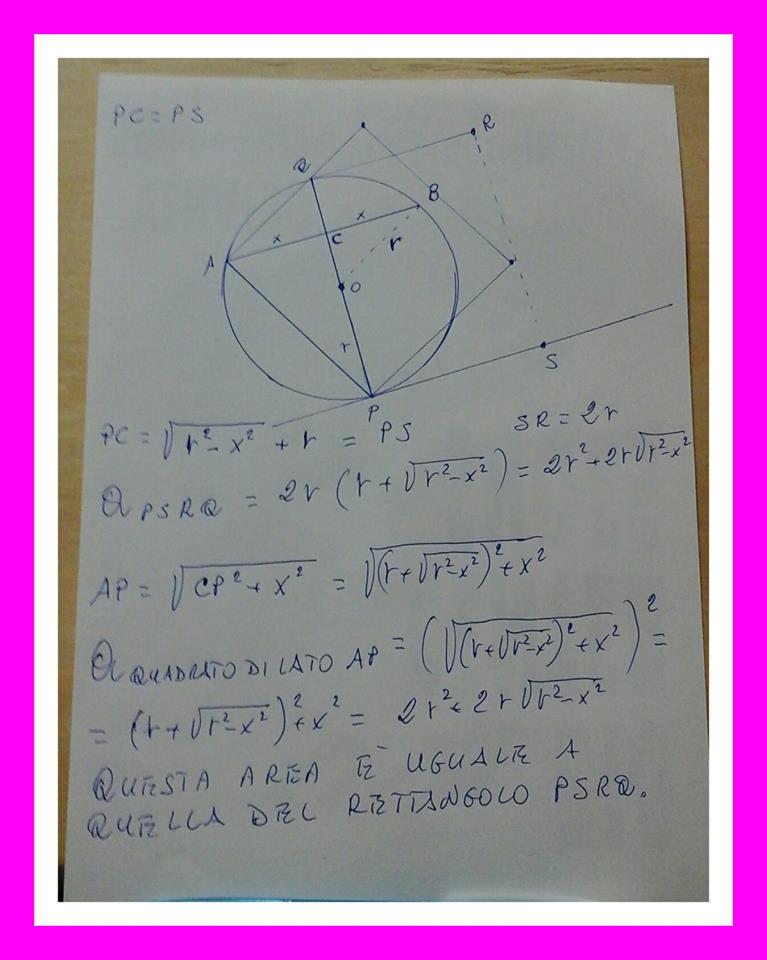 PC = PS
R
Q
B
x
x
C
r
A
O
r
S
P
PC = √(r² - x²) + r = PS
SR = 2r
a PSRQ = 2r (r + √(r² - x²)) = 2r² + 2r√(r² - x²)
AP = √(CP² + x²) = √((r + √(r² - x²))² + x²)
a QUADRATO DI LATO AP = (√((r + √(r² - x²))² + x²))² =
= (r + √(r² - x²))² + x² = 2r² + 2r√(r² - x²)
QUESTA AREA È UGUALE A
QUELLA DEL RETTANGOLO PSRQ.